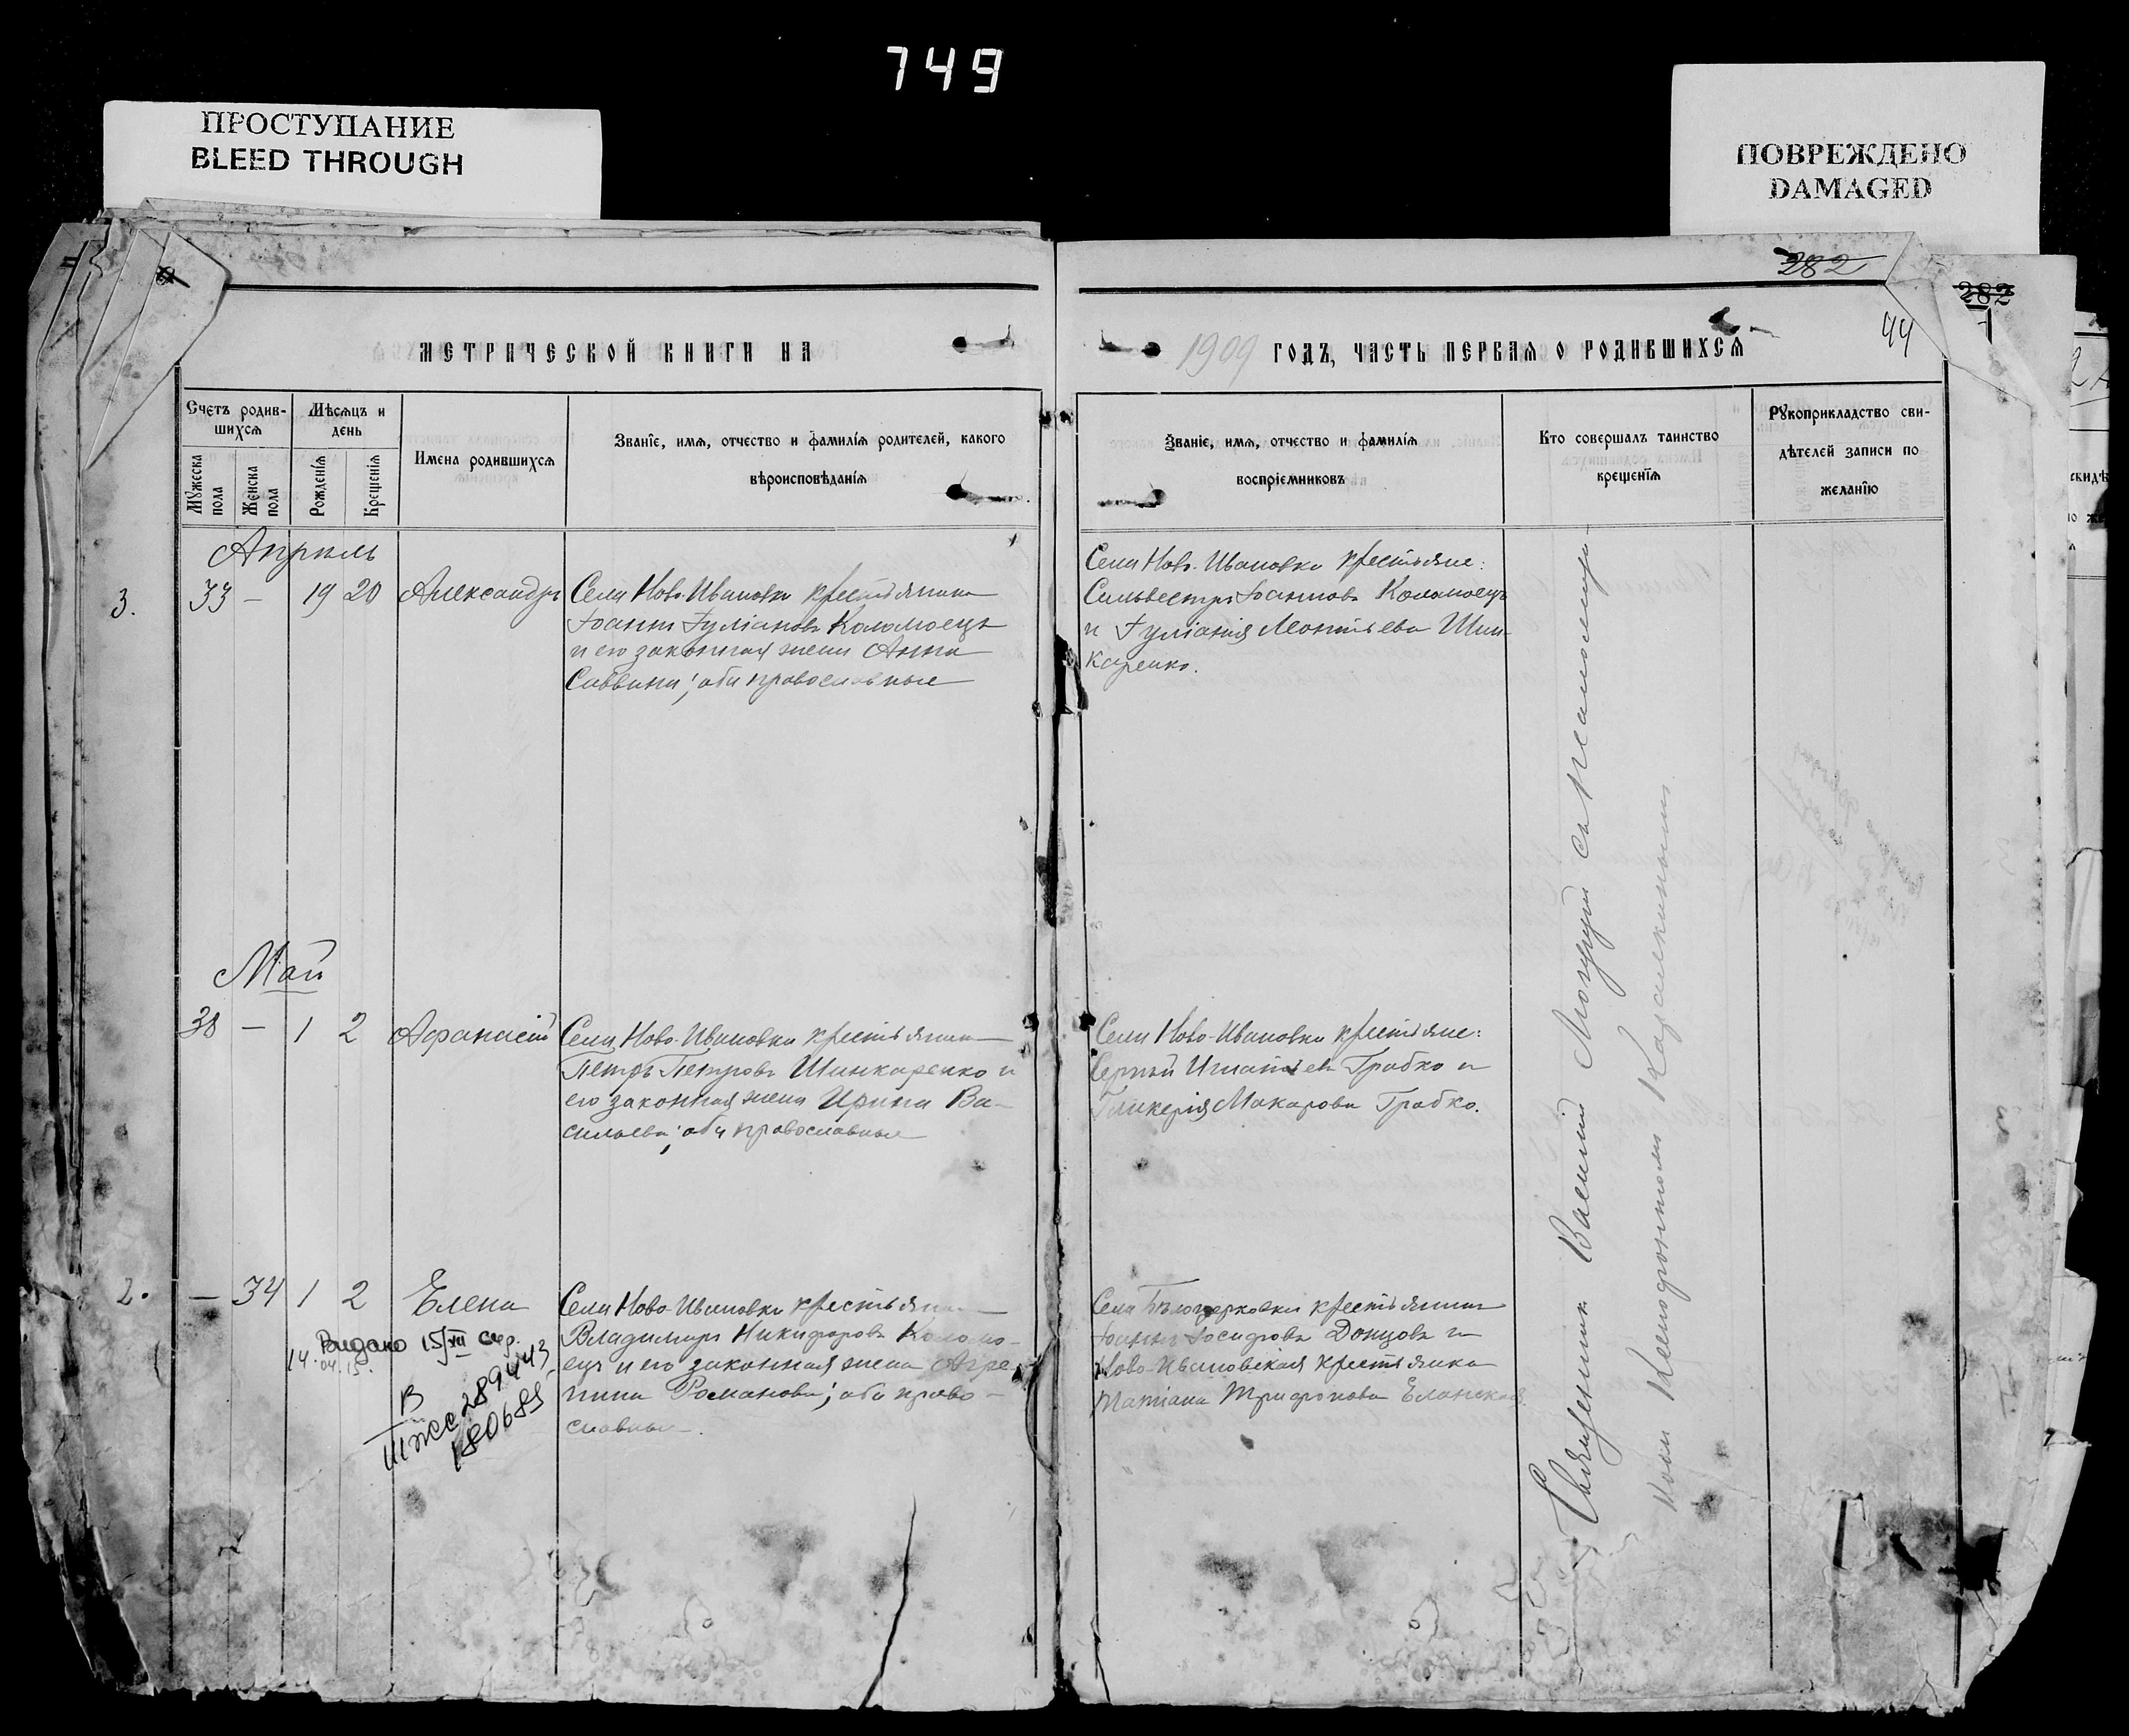 749
ПРОСТУПАНИЕ
BLEED THROUGH
ПОВРЕЖДЕНО
DAMAGED
282
282
44
МЕТРИЧЕСКОЙ КНИГИ НА
1909 ГОДЪ, ЧАСТЬ ПЕРВАѦ О РОДИВШИХСѦ
Счетъ родив-
шихсѧ
Мѣсѧцъ и
день
Мꙋжеска
пола
Женска
пола
Рожденїѧ
Крещенїѧ
Имена родившихсѧ
Званїе, имѧ, отчество и фамилїѧ родителей, какого
вѣроисповѣданїѧ
Званїе, имѧ, отчество и фамилїѧ
воспрїемниковъ
Кто совершалъ таинство
крещенїѧ
Рꙋкоприкладство сви-
дѣтелей записи по
желанїю
Апрель
3.
33 — 19 20 Александръ
Села Ново-Ивановки крестьянинъ
Іоаннъ Іуліановъ Коломоецъ
и его законная жена Анна
Саввина; оба православные
Села Ново-Ивановки крестьяне:
Сильвестръ Іоанновъ Коломоецъ
и Іуліанія Леонтьева Шин-
каренко.
Май
38 — 1 2 Афанасій
Села Ново-Ивановки крестьянинъ
Петръ Петровъ Шинкаренко и
его законная жена Ирина Ва-
сильева; оба православные
Села Ново-Ивановки крестьяне:
Сергѣй Игнатьевъ Грабко и
Гликерія Макарова Грабко.
2.
— 34 1 2 Елена
Села Ново-Ивановки крестьянинъ
Владимиръ Никифоровъ Коломо-
ецъ и его законная жена Агре-
пина Романова; оба право-
славные.
Села Бѣлоцерковки крестьянинъ
Іоаннъ Іосифовъ Донцовъ и
Ново-Ивановская крестьянка
Татіана Трифонова Еланская
Выдано 15/VII
14.04.15.
В
289443
180685
Священникъ Василій Могучій съ псаломщи-
комъ Ксенофонтомъ